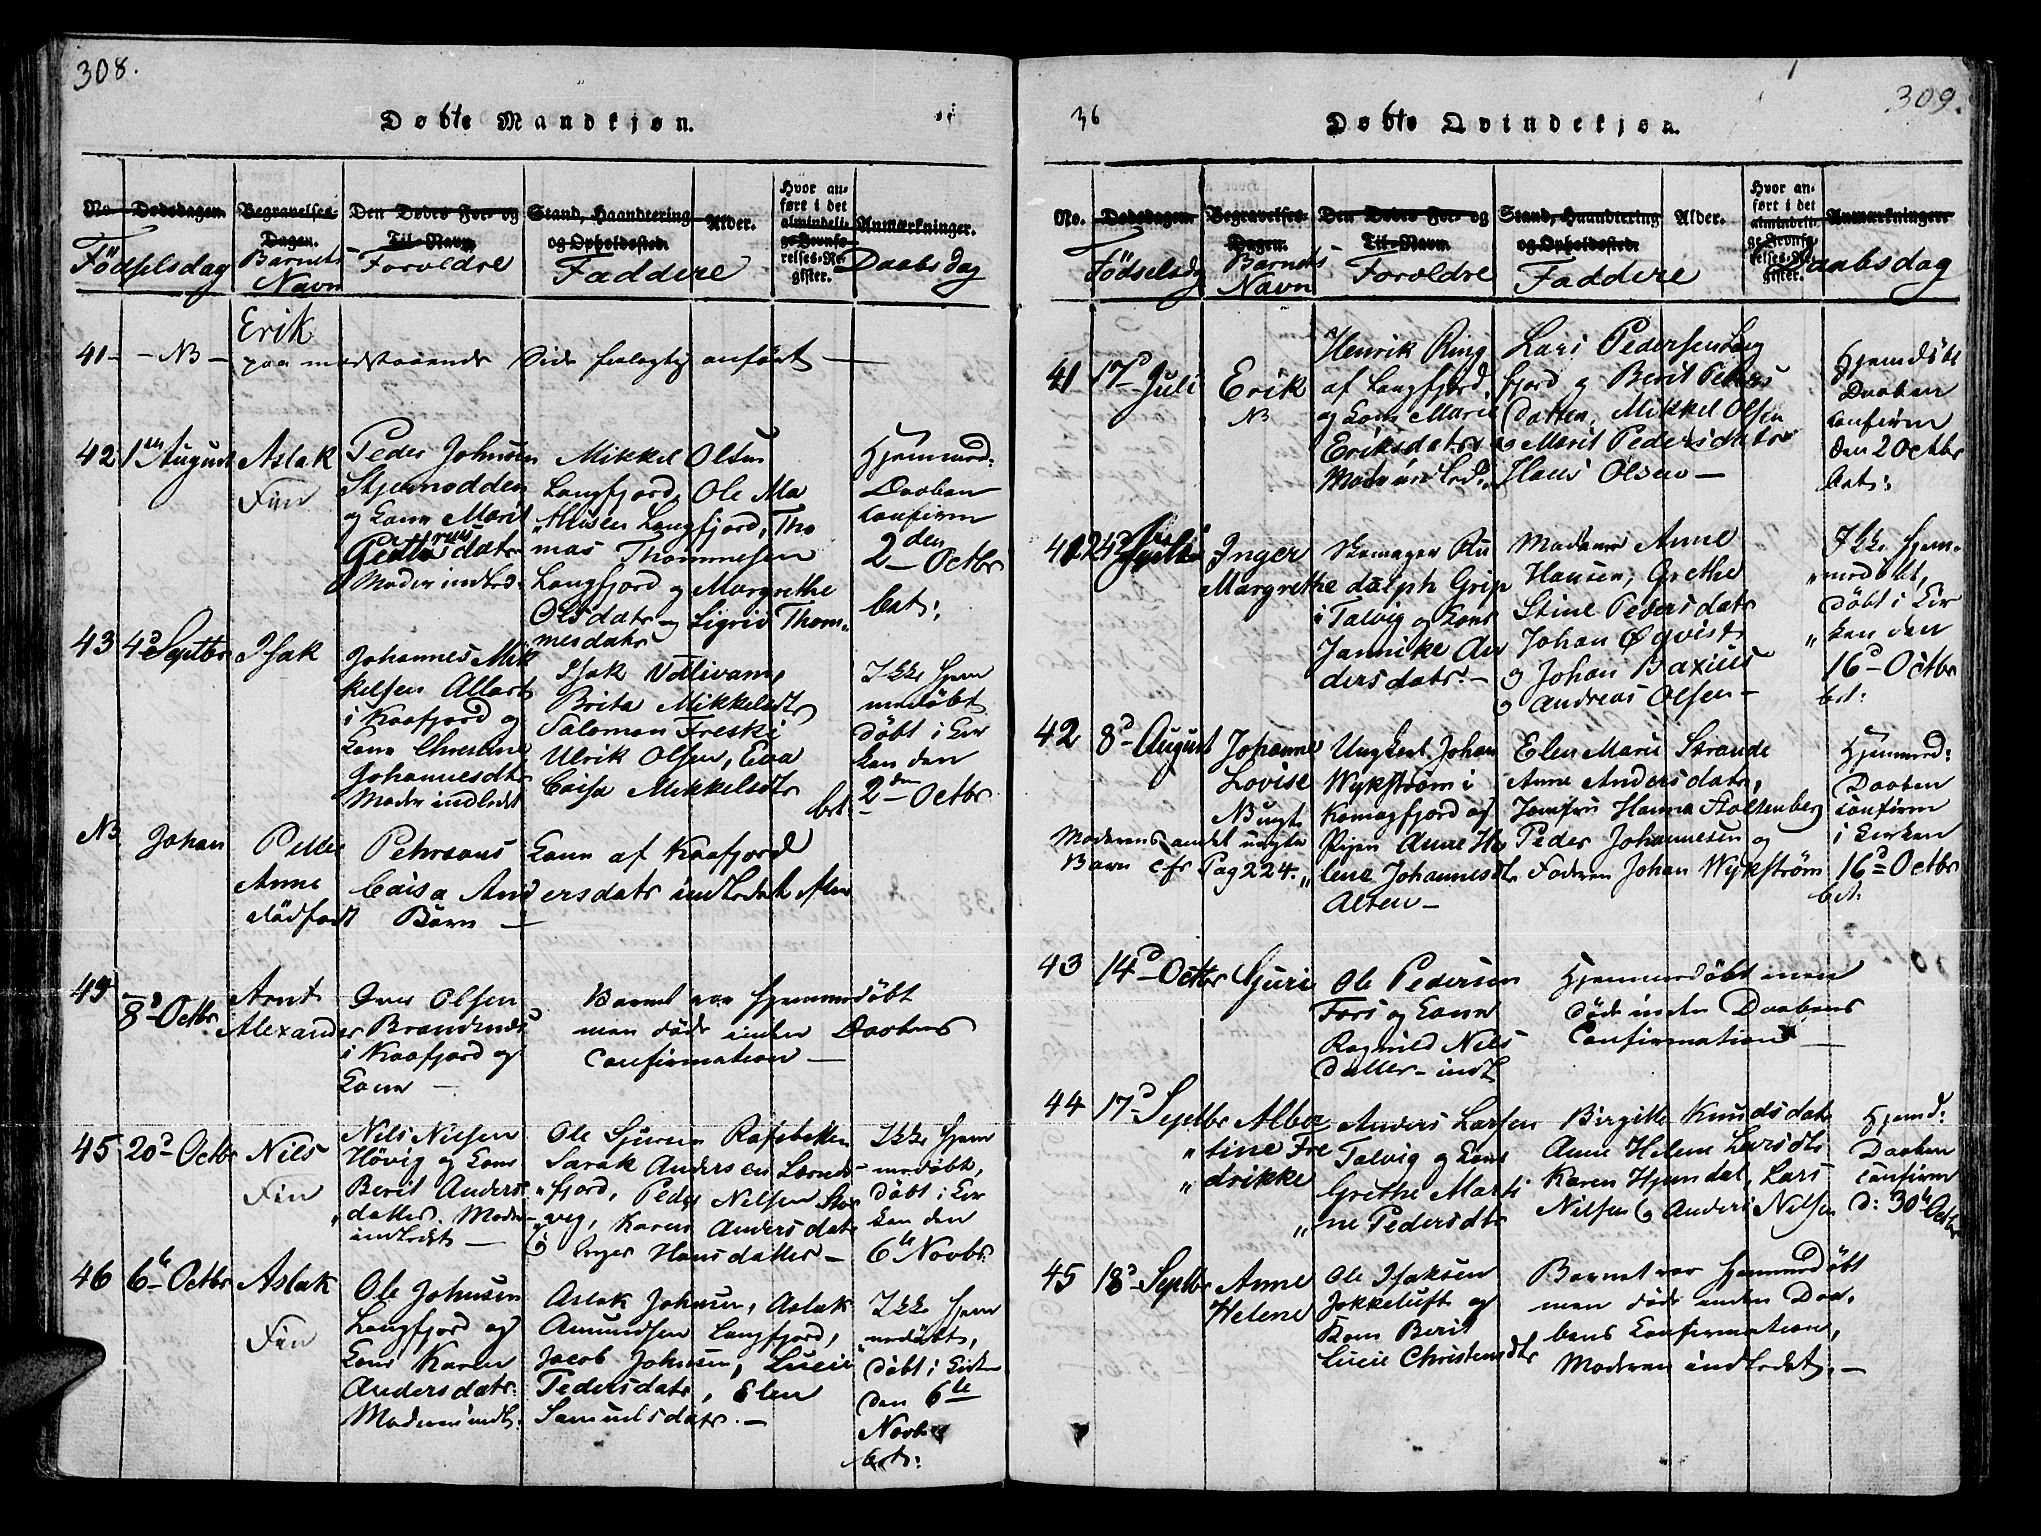 308.
Døbte Mandkjøn.
No. Dødsdagen. Begravelses-Dagen. Den Dødes For- og Til-Navn. Stand, Haandtering og Opholdssted. Alder. Hvor anført i det almindelige Jevnførelses-Register. Anmærkninger.
Födselsdag Barnets Navn Forældre Faddere Daabsdag
41- - NB - Erik
paa modstaaende Side feilagtig anført -
42 1ste August Aslak
Fin
Peder Johnsen
Stjernodden
og Kone Marit
Pettersdatr
Moder indled:
Mikkel Olsen
Langfjord, Ole Ma
thisen Langfjord, Tho
mas Thommesen
Langfjord og Margrethe
Olsdatr og Sigrid Thom-
mesdatr
Hjemmed:
Daaben
confirm
2den Octbr
bet:
43 4d Septbr Isak
Johannes Mik
kelsen Allart
i Kaafjord og
Kone Christine
Johannesdtr
Moder indledet
Isak
Brita Mikkelsdtr
Salomon Freski
Ulrik Olsen, Eva
Caisa Mikkelsdtr
Ikke hjem
medøbt
døbt i Kir
ken den
2den Octbr
bet:
NB Johan Pelle Pehrsons Kone af Kaafjord
Anne Caisa Andersdatr indledet efter
dødfødt Barn -
44 8d Octbr Arnt
Alexander
Iver Olsen
i Kaafjord og
Kone -
Barnet var hjemmedøbt
men døde inden Daabens
Confirmation -
45 20d Octbr Nils
Fin
Nils Nielsen
Hövig og Kone
Berit Anders
datter. Moder
indledet -
Ole Sjursen Rafsbotten
Sarak Andersen Lerreds-
fjord, Peder Nilsen Stor
veg, Karen Andersdatr
og Inger Hansdatter -
Ikke hjem
medøbt,
døbt i Kir
ken den
6te Novbr.
46 6te Octbr Aslak
Fin
Ole Johnsen
Langfjord og
Kone Karen
Andersdatr.
Moderen indl:
Aslak Johnsen, Aslak
Amundsen Langfjord,
Jacob Johnsen, Lucie
Pedersdatr, Elen
Samuelsdatr. -
Ikke hjem
medøbt,
døbt i Kirken
den 6te
Novbr
bet:
36
309.
Døbte Qvindekjøn.
No. Dødsdagen. Begravelses-Dagen. Den Dødes For- og Til-Navn. Stand, Haandtering og Opholdssted. Alder. Hvor anført i det almindelige Jevnførelses-Register. Anmærkninger.
Födselsdg Barnets Navn Forældre Faddere Daabsdag
41 17d Juli Erik
NB
Henrik Ring
af Langfjord
og Kone Marie
Eriksdatr
Moderen led:
Lars Pedersen Lang
fjord og Berit Peders
datter, Mikkel Olsen
og Marit Pedersdatr
Hans Olsen -
Hjemdöbt
Daaben
confirm
den 2 Octbr
bet:
41 24d Juli Inger
Margrethe
Skomager Ru
dalph Grip
i Talvig og Kone
Jannike An
dersdatr. -
Madame Anne
Hansen, Grethe
Stine Pedersdatr
Johan Øqvist
og Johan Baxius
og Andreas Olsen -
Ikke hjem-
medøbt,
døbt i Kir
ken den
16d Octbr
bet:
42 8d August Johanne
Lovise
NB uægt
Moderens andet uægte
Barn cfr Pag 224.
Ungkarl Johan
Wykström i
Komagfjord og
Pigen Anne He
lene Johannesdtr
Alten -
Elen Marie Strande
Anne Andersdatr,
Jomfru Hanna Stoltenberg
Peder Johannesen og
Faderen Johan Wykström
Hjemmed:
Daaben
confirm
i Kirken
16d Octbr
bet:
43 14d Octbr Gjuri
Ole Pedersen
Fors og Kone
Ragnild Nils
datter - indl
Hjemmedøbt men
døde inden Daabens
Confirmation -
44 17d Septbr Alber
tine Fre
drikke
Anders Larsen
Talvig og Kone
Grethe Marti
ne Pedersdtr
Birgitte Knudsdatr
Anne Helene Larsdtr
Karen Hjemdal, Lars
Nilsen og Anders Nilsen
Hjemd:
Daaben
confirm
d: 30te Octbr
45 18d Septbr Anne
Helene
Ole Isaksen
Jokkeluft og
Kone Berit
Lucie Christensdtr
Barnet var hjemmedøbt
men døde inden Daa-
bens Confirmation,
Moderen indledet. -